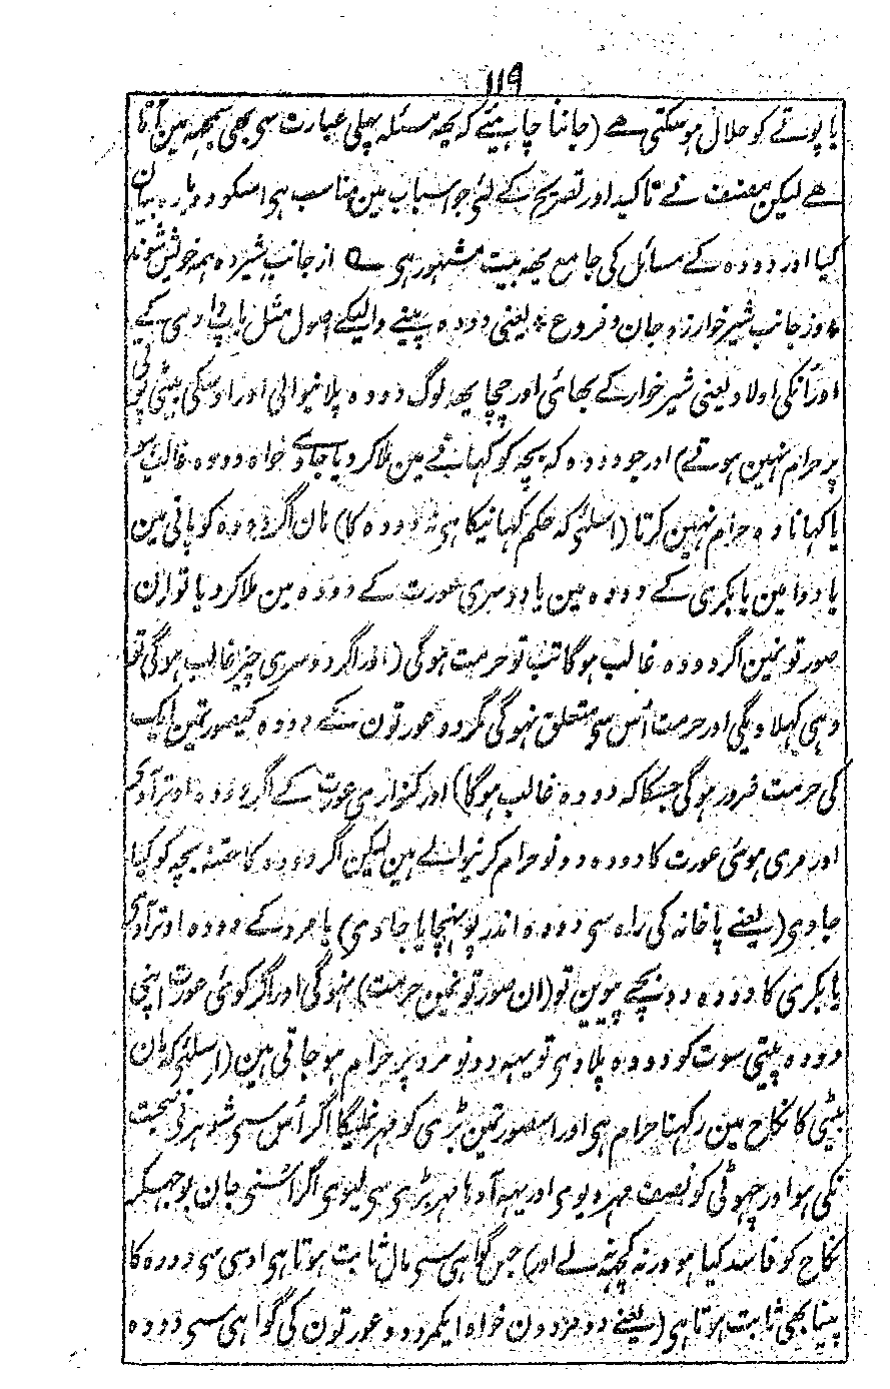 ۱۱۹
یا پوتے کو حلال ہو سکتی ہے (جاننا چاہیئے کہ یہہ مسئلہ پہلی عبارت سی بھی سمجھہ مین آتا
ہے لیکن مصنف نے تاکید اور تصریح کے لئی جو اسباب مین مناسب ہی اسکو دوبارہ بیان
کیا اور دودہ کے مسائل کی جامع یھہ بیت مشہور ہی ؎ از جانب شیردہ ہمہ خویش شوند
وز جانب شیرخوار زوجان و فروع * یعنی دودہ پینے والیکے اصول مثل باپ دادی کے
اور اُنکی اولاد یعنی شیرخوار کے بھائی اور چچا یھہ لوگ دودہ پلانیوالی اور اوسکی بیٹی پوتی
پر حرام نہین ہوتے) اور جو دودہ کہ بچہ کو کہانے مین ملا کر دیا جاوے خواہ دودہ غالب ہو
یا کہانا وہ حرام نہین کرتا (اسلئی کہ حکم کہانیکا ہی نہ دودہ کا) ہان اگر دودہ کو پانی مین
یا دوا مین یا بکری کے دودہ مین یا دوسری عورت کے دودہ مین ملا کر دیا تو ان
صورتونمین اگر دودہ غالب ہوگا تب تو حرمت ہوگی (اور اگر دوسری چیز غالب ہوگی تو
وہی کہلاویگی اور حرمت اُس سی متعلق نہوگی مگر دو عورتون کے دودہ کیصورتمین ایک
کی حرمت ضرور ہوگی جسکا کہ دودہ غالب ہوگا) اور کنواری عورت کے اگر دودہ اوتر آوے
اور مری ہوئی عورت کا دودہ دونو حرام کرنیوالے ہین لیکن اگر دودہ کا حقنہ بچہ کو کیا
جاوی (یعنے پاخانہ کی راہ سی دودہ اندر پونہچایا جاوی) یا مرد کے دودہ اوتر آوی
یا بکری کا دودہ دو بچے پیوین تو (ان صورتونمین حرمت) نہوگی اور اگر کوئی عورت اپنی
دودہ پیتی سوت کو دودہ پلادی تو یہہ دونو مرد پر حرام ہو جاتی ہین (اسلئی کہ مان
بیٹی کا نکاح مین رکہنا حرام ہی اور اسصورتمین بڑی کو مہر نملیگا اگر اُس سی شوہر نی صحبت
نکی ہو اور چہوٹی کو نصف مہر دیوی اور یہہ آدہا مہر بڑی سی لیوی اگر اُسنی جان بوجہکر
نکاح کو فاسد کیا ہو ورنہ کچہہ نہ لے اور) جس گواہی سی مال ثابت ہوتا ہی اوسی سی دودہ کا
پینا بھی ثابت ہوتا ہی (یعنے دو مردون خواہ ایکمرد دو عورتون کی گواہی سی دودہ